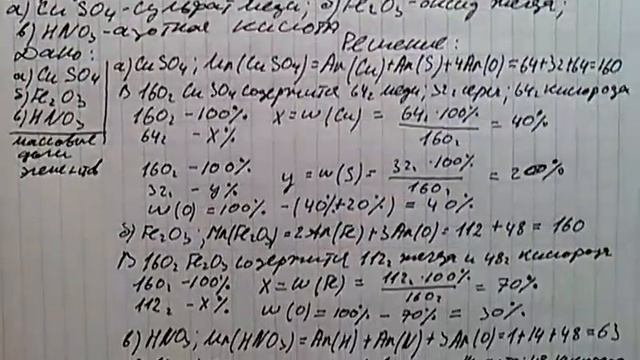 а) CuSO4 - сульфат меди; б) Fe2O3 - оксид железа;
в) HNO3 - азотная кислота
Дано: Решение:
а) CuSO4
б) Fe2O3
в) HNO3
массовые
доли
элементов
а) CuSO4; Mr(CuSO4) = Ar(Cu) + Ar(S) + 4Ar(O) = 64 + 32 + 64 = 160
В 160г CuSO4 содержится 64г меди; 32г серы; 64г кислорода
160г - 100% X = w(Cu) = 64г · 100% / 160г = 40%
64г - X%
160г - 100% y = w(S) = 32г · 100% / 160г = 20%
32г - y%
w(O) = 100% - (40% + 20%) = 40%
б) Fe2O3; Mr(Fe2O3) = 2Ar(Fe) + 3Ar(O) = 112 + 48 = 160
В 160г Fe2O3 содержится 112г железа и 48г кислорода
160г - 100% X = w(Fe) = 112г · 100% / 160г = 70%
112г - X% w(O) = 100% - 70% = 30%
в) HNO3; Mr(HNO3) = Ar(H) + Ar(N) + 3Ar(O) = 1 + 14 + 48 = 63